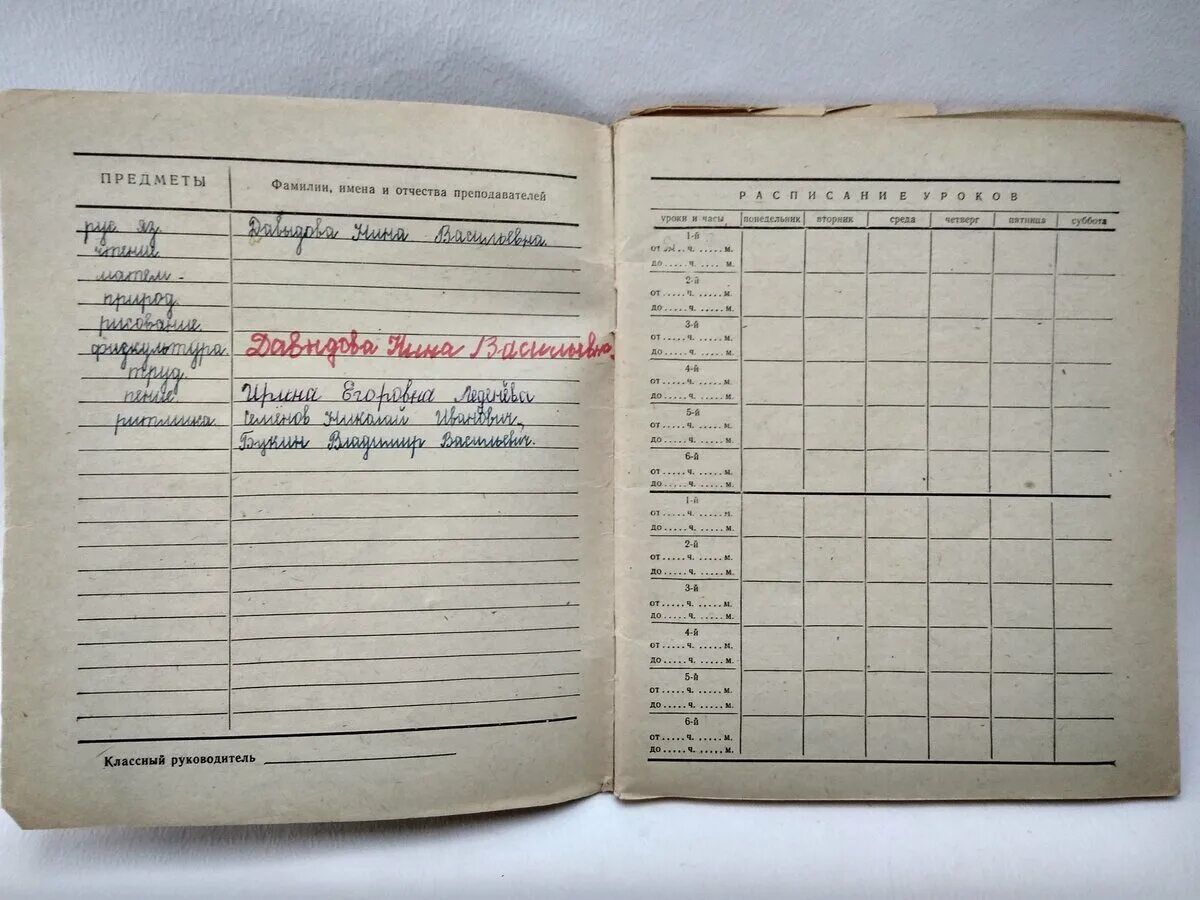 ПРЕДМЕТЫ Фамилии, имена и отчества преподавателей
рус яз. Давыдова Нина Васильевна.
чтение
матем.
природ.
рисование.
физкультура. Давыдова Нина Васильевна.
труд.
пение Ирина Егоровна Леденёва
ритмика. Семёнов Николай Иванович,
Букин Владимир Васильевич.
Классный руководитель
РАСПИСАНИЕ УРОКОВ
уроки и часы понедельник вторник среда четверг пятница суббота
1-й
от ..... ч. ..... м.
до ..... ч. ..... м.
2-й
от ..... ч. ..... м.
до ..... ч. ..... м.
3-й
от ..... ч. ..... м.
до ..... ч. ..... м.
4-й
от ..... ч. ..... м.
до ..... ч. ..... м.
5-й
от ..... ч. ..... м.
до ..... ч. ..... м.
6-й
от ..... ч. ..... м.
до ..... ч. ..... м.
1-й
от ..... ч. ..... м.
до ..... ч. ..... м.
2-й
от ..... ч. ..... м.
до ..... ч. ..... м.
3-й
от ..... ч. ..... м.
до ..... ч. ..... м.
4-й
от ..... ч. ..... м.
до ..... ч. ..... м.
5-й
от ..... ч. ..... м.
до ..... ч. ..... м.
6-й
от ..... ч. ..... м.
до ..... ч. ..... м.